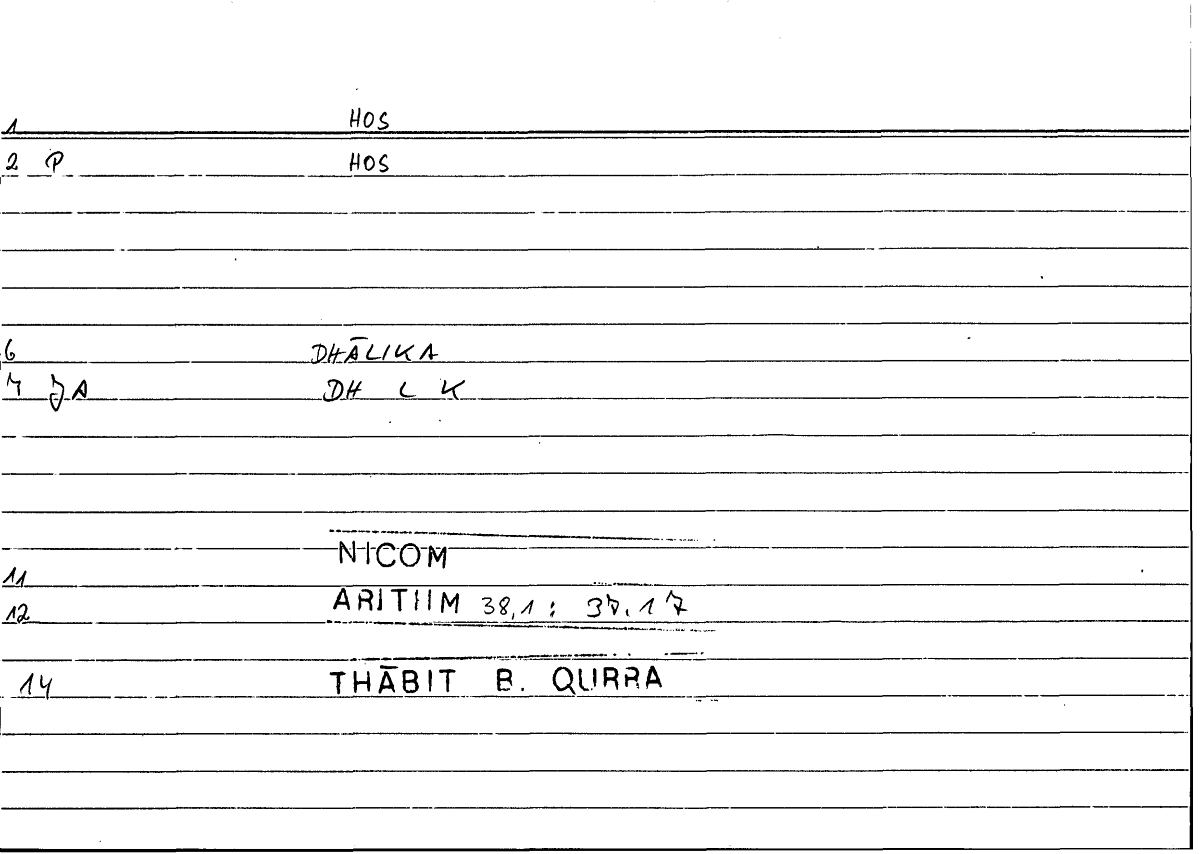 1 HOS
2 P HOS
6 DHĀLIKA
7 JA DH L K
NICOM
11
12 ARITHM 38,1 : 37.17
14 THĀBIT B. QURRA